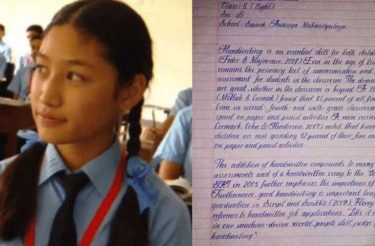 Class:- 8 (Eight)
Sec:- 'B'
School:- Sainik Awasiya Mahavidyalaya
Handwriting is an essential skill for both child
(Feder & Majnemer, 2007). Even in the age of
remains the primary tool of communication and
assessment for students in the classroom. The demands
are great, whether in the classroom or beyond. A
(McHale & Cermak) found that 85 percent of all fine
time in second, fourth and sixth grade classrooms
spent on paper and pencil activities. A more
found that
children are now spending 37 percent of their fine
on paper and pencil activities.
The addition of handwritten components to many
assessments and of a handwritten essay to the
SAT in 2005 further emphasizes the importance of
Furthermore, good handwriting is important long
graduation. In Script and Scribble (2009), Florey
reference to handwritten job applications. Like it or
in our machine-driven world, people still judge
handwriting."